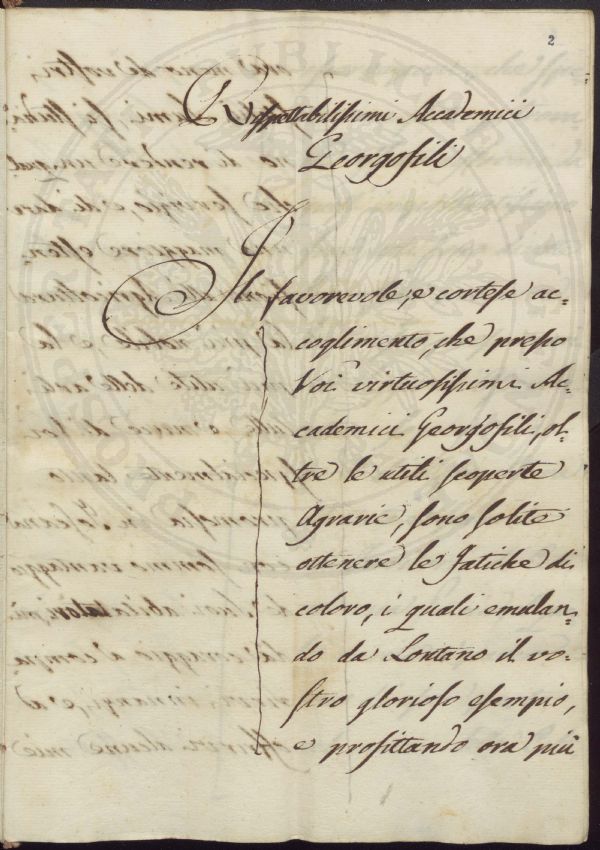 2
Rispettabilissimi Accademici
Georgofili
Il favorevole, e cortese ac=
coglimento, che presso
Voi virtuosissimi Ac=
cademici Georgofili, ol=
tre le utili scoperte
Agrarie, sono solite
ottenere le fatiche di
coloro, i quali emulan=
do da Lontano il vo=
stro glorioso esempio,
e profittando ora più